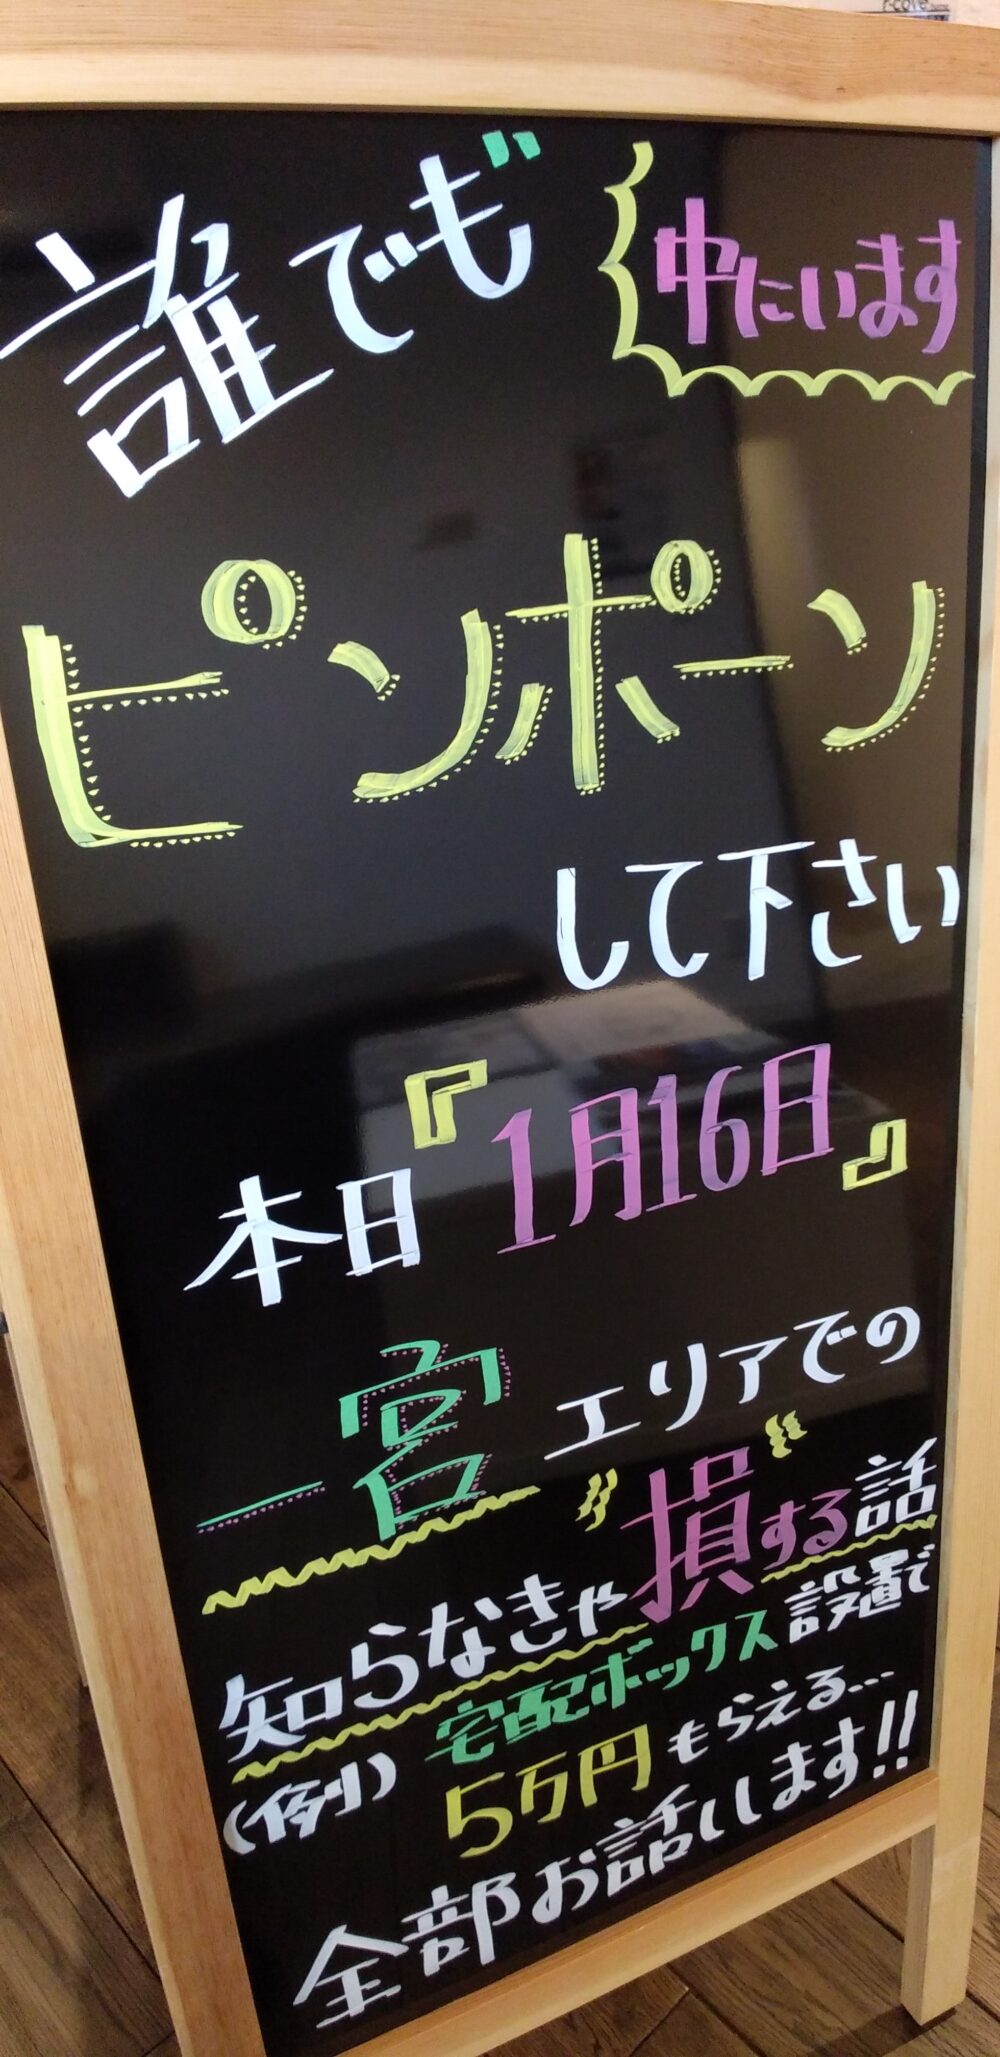 r-cove
誰でも゛
中にいます
ピンポーン
して下さい
本日『1月16日』
一宮エリアでの
知らなきゃ〝損〟する話
(例) 宅配ボックス設置で
5万円もらえる…
全部お話しします!!